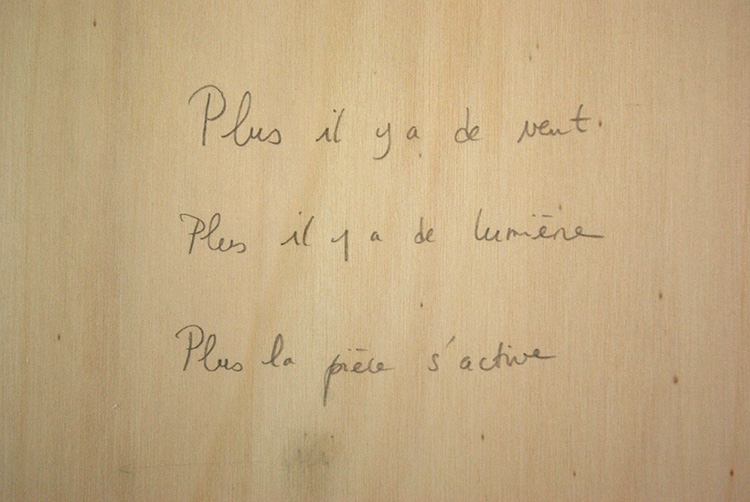 Plus il y a de vent.
Plus il y a de lumière
Plus la pièce s'active